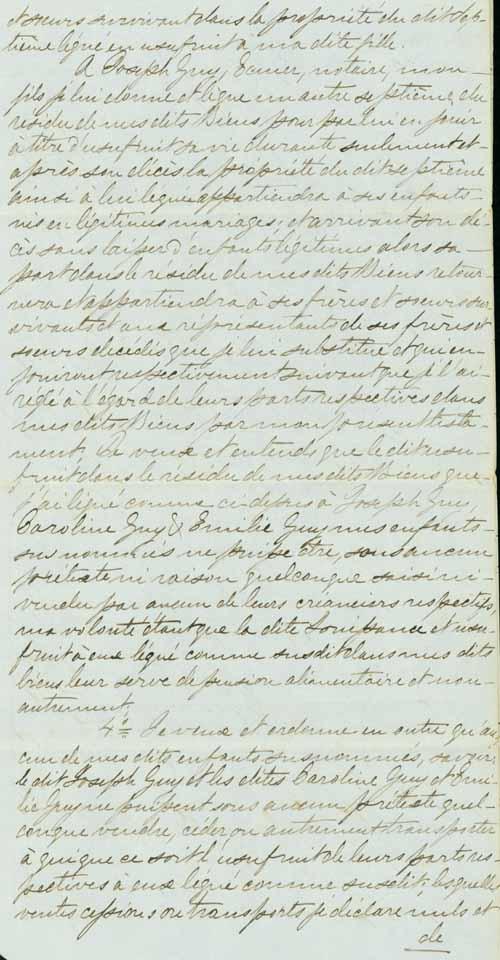 et soeurs survivant dans la propriété du dit Sep-
tième légué en usufruit à ma dite fille.
A Joseph Guy, Ecuier, notaire, mon
fils je lui donne et légue un autre septième du
résidu de mes dits Biens pour par lui en jouir
à titre d'usufruit sa vie durante seulement et
après son décès la propriété du dit septième
ainsi à lui légué appartiendra à ses enfants
nés en légitimes mariages; et arrivant son dé-
cès sans laisser d'enfants légitimes alors sa
part dans le résidu de mes dits Biens retour-
nera et appartiendra à ses frères et soeurs sur-
vivants et aux réprésentants de ses frères et
soeurs décédés que je lui substitue et qui en
jouiront respectivement suivant que je l'ai
réglé à l'égard de leurs parts respectives dans
mes dits Biens par mon présent testa-
ment. Je veux et entends que le dit usu-
fruit dans le résidu de mes dits Biens que
j'ai légué comme ci-dessus à Joseph Guy,
Caroline Guy & Emilie Guy mes enfants
susnommés ne puisse être, sous aucun
prétexte ni raison quelconque saisi ni
vendu par aucun de leurs créanciers respectifs
ma volonté étant que la dite jouissance et usu-
fruit à eux légué comme susdit dans mes dits
biens leur serve de pension alimentaire et non
autrement.
4o. Je veux et ordonne en outre qu'au-
cun de mes dits enfants susnommés, savoir:
le dit Joseph Guy et les dites Caroline Guy et Emi-
lie Guy ne puissent sous aucun prétexte quel-
conque vendre, céder, ou autrement transporter
à qui que ce soit l'usufruit de leurs parts res-
pectives à eux légué comme susdit; lesquelles
ventes cessions ou transports je déclare nuls et
de